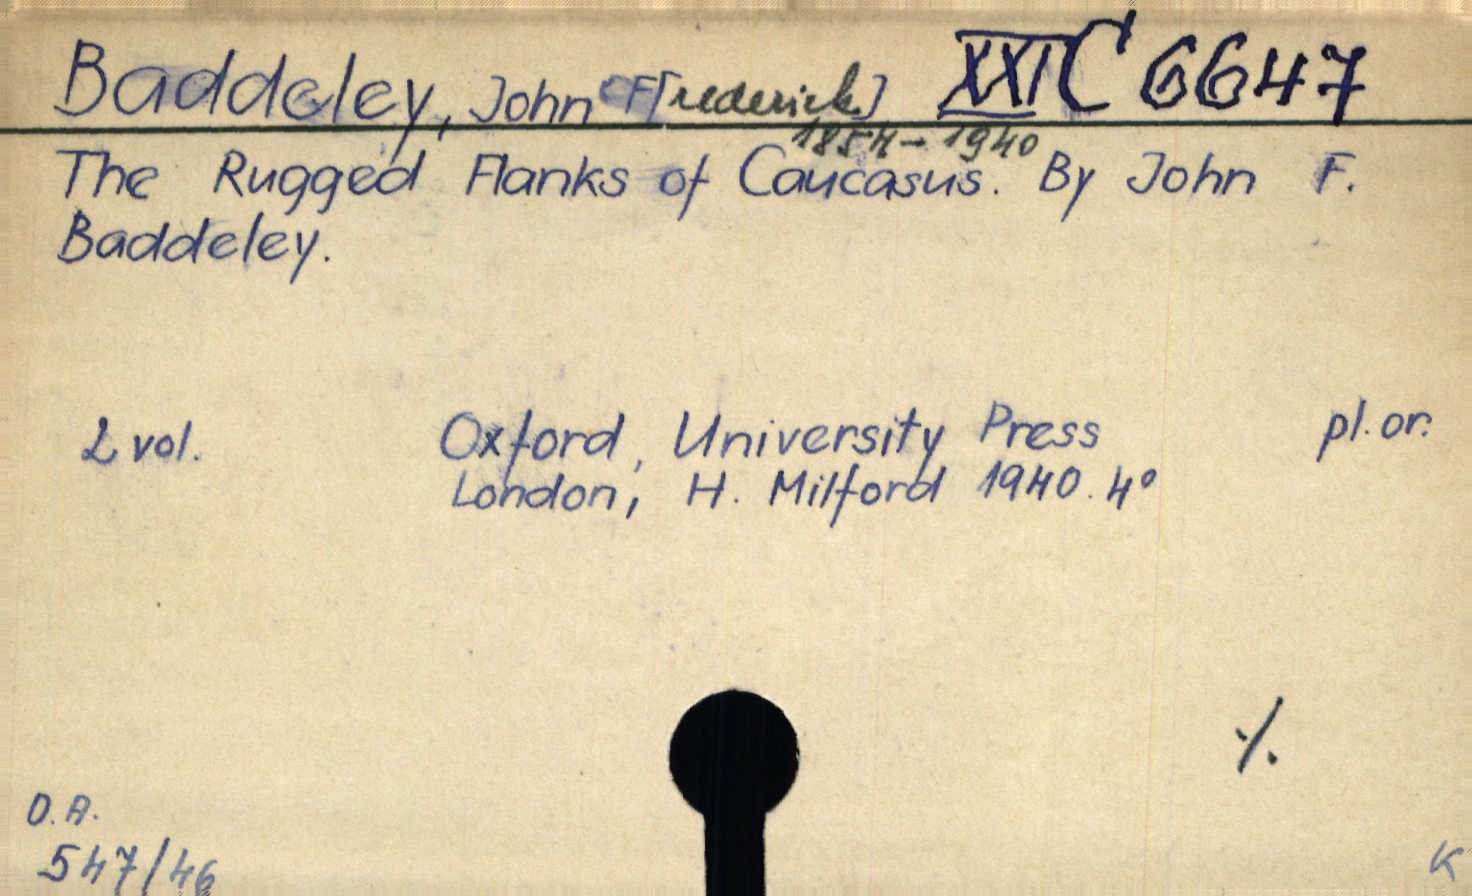 Baddeley, John F[rederick] XXI C 6647
1854-1940
The Rugged Flanks of Caucasus. By John F.
Baddeley.
2 vol. Oxford, University Press pl. or.
London, H. Milford 1940. 4°
./.
D.A.
547/46 K